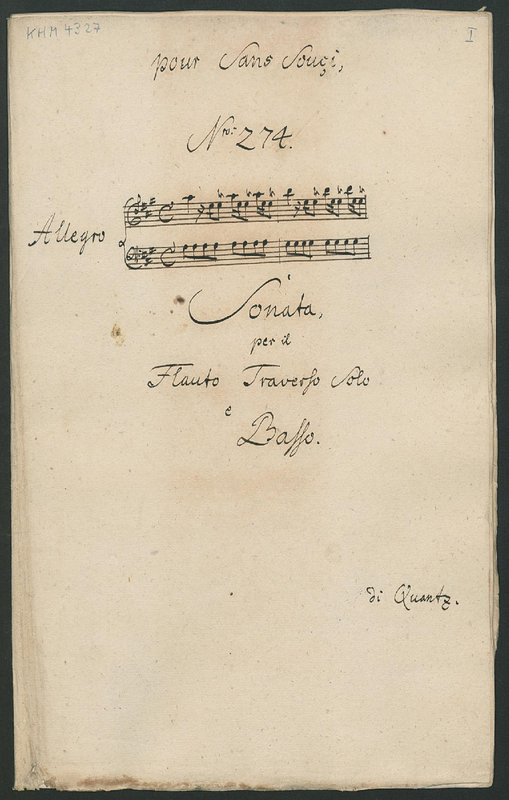 KHM 4327
I
pour Sans Souçi,
Nro: 274.
Allegro
Sonata,
per il
Flauto Traverso Solo
e
Basso.
di Quantz.